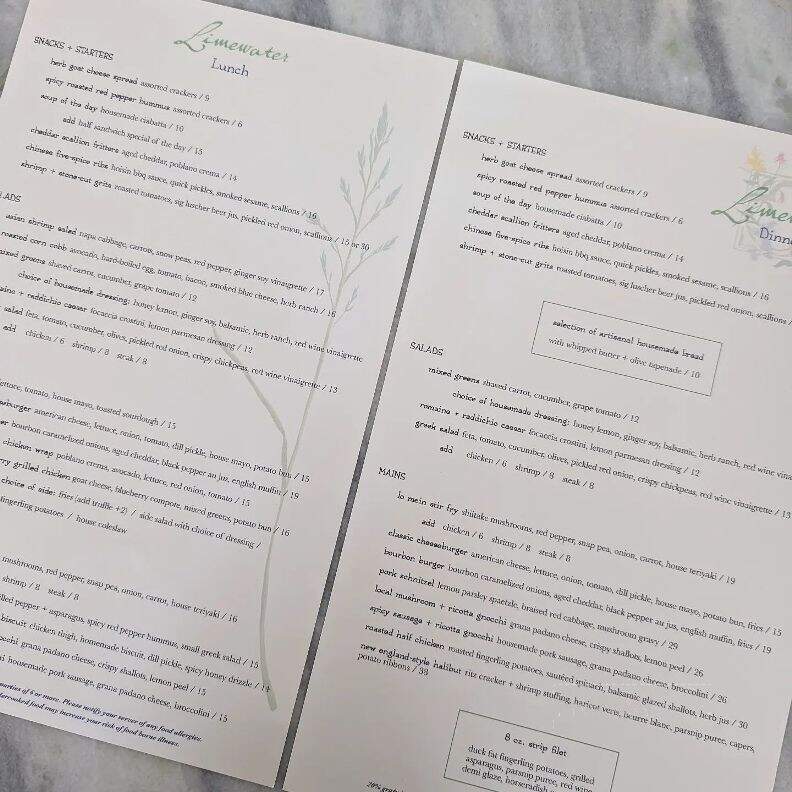 Limewater
Lunch
SNACKS + STARTERS
herb goat cheese spread assorted crackers / 9
spicy roasted red pepper hummus assorted crackers / 6
soup of the day housemade ciabatta / 10
add half sandwich special of the day / 15
cheddar scallion fritters aged cheddar, poblano crema / 14
chinese five-spice ribs hoisin bbq sauce, quick pickles, smoked sesame, scallions / 16
shrimp + stone-cut grits roasted tomatoes, sig luscher beer jus, pickled red onion, scallions / 15 or 30
LADS
asian shrimp salad napa cabbage, carrots, snow peas, red pepper, ginger soy vinaigrette / 17
roasted corn cobb avocado, hard-boiled egg, tomato, bacon, smoked blue cheese, herb ranch / 16
mixed greens shaved carrot, cucumber, grape tomato / 12
choice of housemade dressing: honey lemon, ginger soy, balsamic, herb ranch, red wine vinaigrette
maine + raddichio caesar focaccia crostini, lemon parmesan dressing / 12
salad feta, tomato, cucumber, olives, pickled red onion, crispy chickpeas, red wine vinaigrette / 13
add chicken / 6 shrimp / 8 steak / 8
lettuce, tomato, house mayo, toasted sourdough / 15
eseburger american cheese, lettuce, onion, tomato, dill pickle, house mayo, potato bun / 15
er bourbon caramelized onions, aged cheddar, black pepper au jus, english muffin / 19
chicken wrap poblano crema, avocado, lettuce, red onion, tomato / 15
rry grilled chicken goat cheese, blueberry compote, mixed greens, potato bun / 16
choice of side: fries (add truffle +2) / side salad with choice of dressing /
fingerling potatoes / house coleslaw
mushrooms, red pepper, snap pea, onion, carrot, house teriyaki / 16
shrimp / 8 steak / 8
lled pepper + asparagus, spicy red pepper hummus, small greek salad / 15
biscuit chicken thigh, homemade biscuit, dill pickle, spicy honey drizzle / 14
occhi grana padano cheese, crispy shallots, lemon peel / 15
hi housemade pork sausage, grana padano cheese, broccolini / 15
parties of 6 or more. Please notify your server of any food allergies.
dercooked food may increase your risk of food borne illness.
Limew
Dinn
SNACKS + STARTERS
herb goat cheese spread assorted crackers / 9
spicy roasted red pepper hummus assorted crackers / 6
soup of the day housemade ciabatta / 10
cheddar scallion fritters aged cheddar, poblano crema / 14
chinese five-spice ribs hoisin bbq sauce, quick pickles, smoked sesame, scallions / 16
shrimp + stone-cut grits roasted tomatoes, sig luscher beer jus, pickled red onion, scallions /
selection of artisanal housemade bread
with whipped butter + olive tapenade / 10
SALADS
mixed greens shaved carrot, cucumber, grape tomato / 12
choice of housemade dressing: honey lemon, ginger soy, balsamic, herb ranch, red wine vina
romaine + raddichio caesar focaccia crostini, lemon parmesan dressing / 12
greek salad feta, tomato, cucumber, olives, pickled red onion, crispy chickpeas, red wine vinaigrette / 13
add chicken / 6 shrimp / 8 steak / 8
MAINS
lo mein stir fry shiitake mushrooms, red pepper, snap pea, onion, carrot, house teriyaki / 19
add chicken / 6 shrimp / 8 steak / 8
classic cheeseburger american cheese, lettuce, onion, tomato, dill pickle, house mayo, potato bun, fries / 15
bourbon burger bourbon caramelized onions, aged cheddar, black pepper au jus, english muffin, fries / 19
pork schnitzel lemon parsley spaetzle, braised red cabbage, mushroom gravy / 29
local mushroom + ricotta gnocchi grana padano cheese, crispy shallots, lemon peel / 26
spicy sausage + ricotta gnocchi housemade pork sausage, grana padano cheese, broccolini / 26
roasted half chicken roasted fingerling potatoes, sautéed spinach, balsamic glazed shallots, herb jus / 30
new england-style halibut ritz cracker + shrimp stuffing, haricot verts, beurre blanc, parsnip puree, capers,
potato ribbons / 38
8 oz. strip filet
duck fat fingerling potatoes, grilled
asparagus, parsnip puree, red wine
demi glaze, horseradish
20% grat